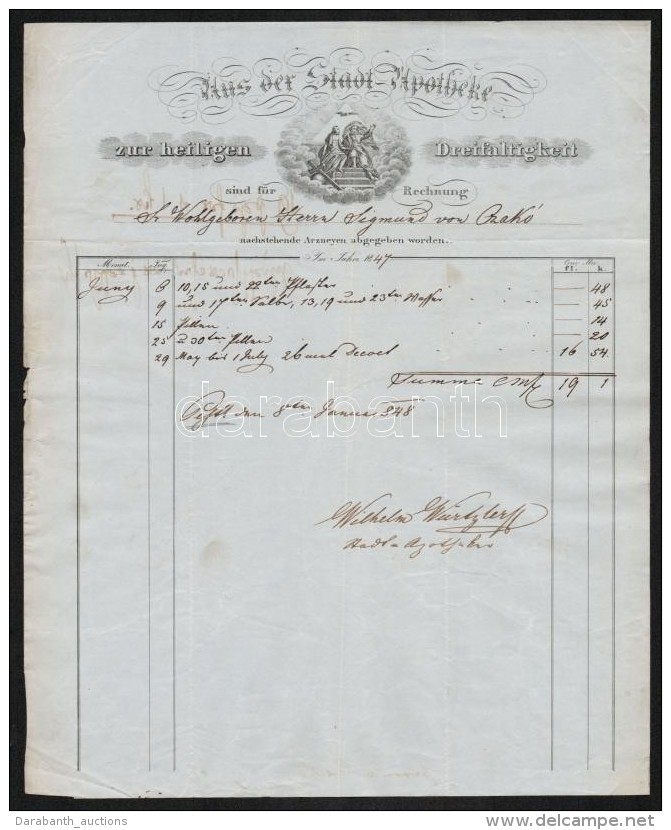 Aus der Stadt-Apotheke
zur heiligen Dreifaltigkeit
sind für Rechnung
Sr Wohlgeboren Herrn Segmund von
nachstehende Arzneyen abgegeben worden.
Im Jahre 1847
Monat. Tag. fl. k.
Juny 6 10, 15 und 22ten Pflaster 48
9 und 17ten Salbe, 13, 19 und 23ten Wasser 45
15 Pillen 14
25 u 30ten Pillen 20
29 May bis 1 July 26 mal Decoct 16 54
Summe CMfx 19 1
darabanth
Pesth den 8ten Januar 848
Wilhelm Würtzler
Stadt Apotheker
Darabanth_auctions
delcampe.net